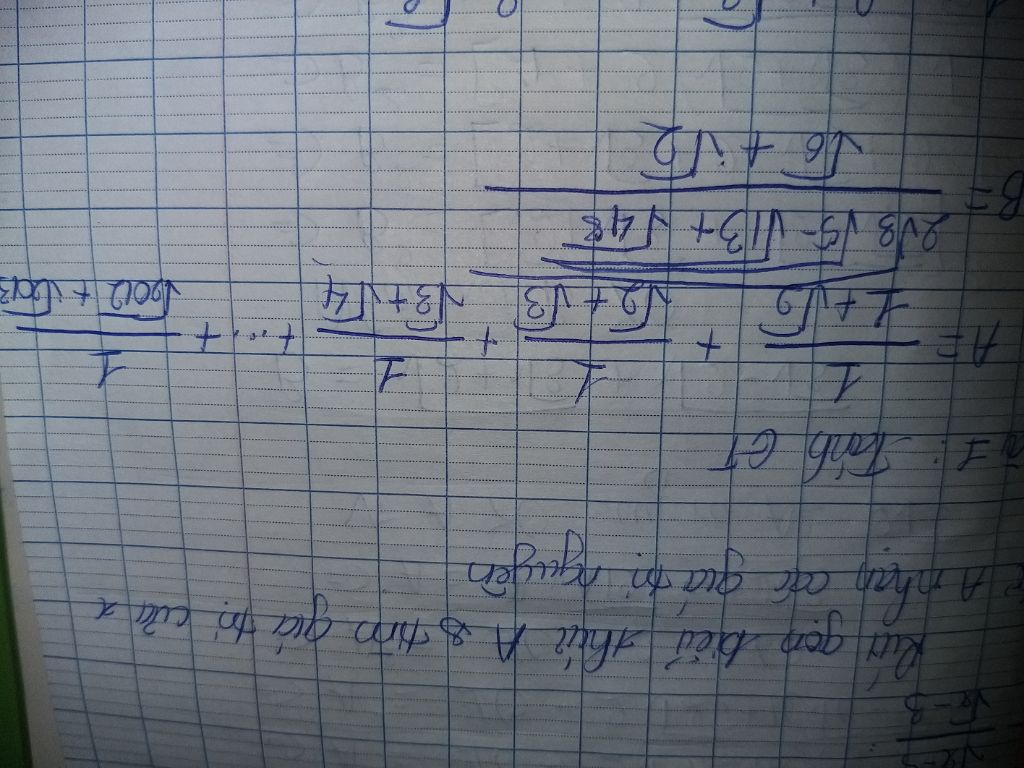 √x-3
Rút gọn biểu thức A & tìm giá trị của x
A nhận các giá trị nguyên
1: Tính GT
A = 1/(1+√2) + 1/(√2+√3) + 1/(√3+√4) + ... + 1/(√2012+√2013)
B = 2√(3√(5-√(13+√48)))/(√6+√2)